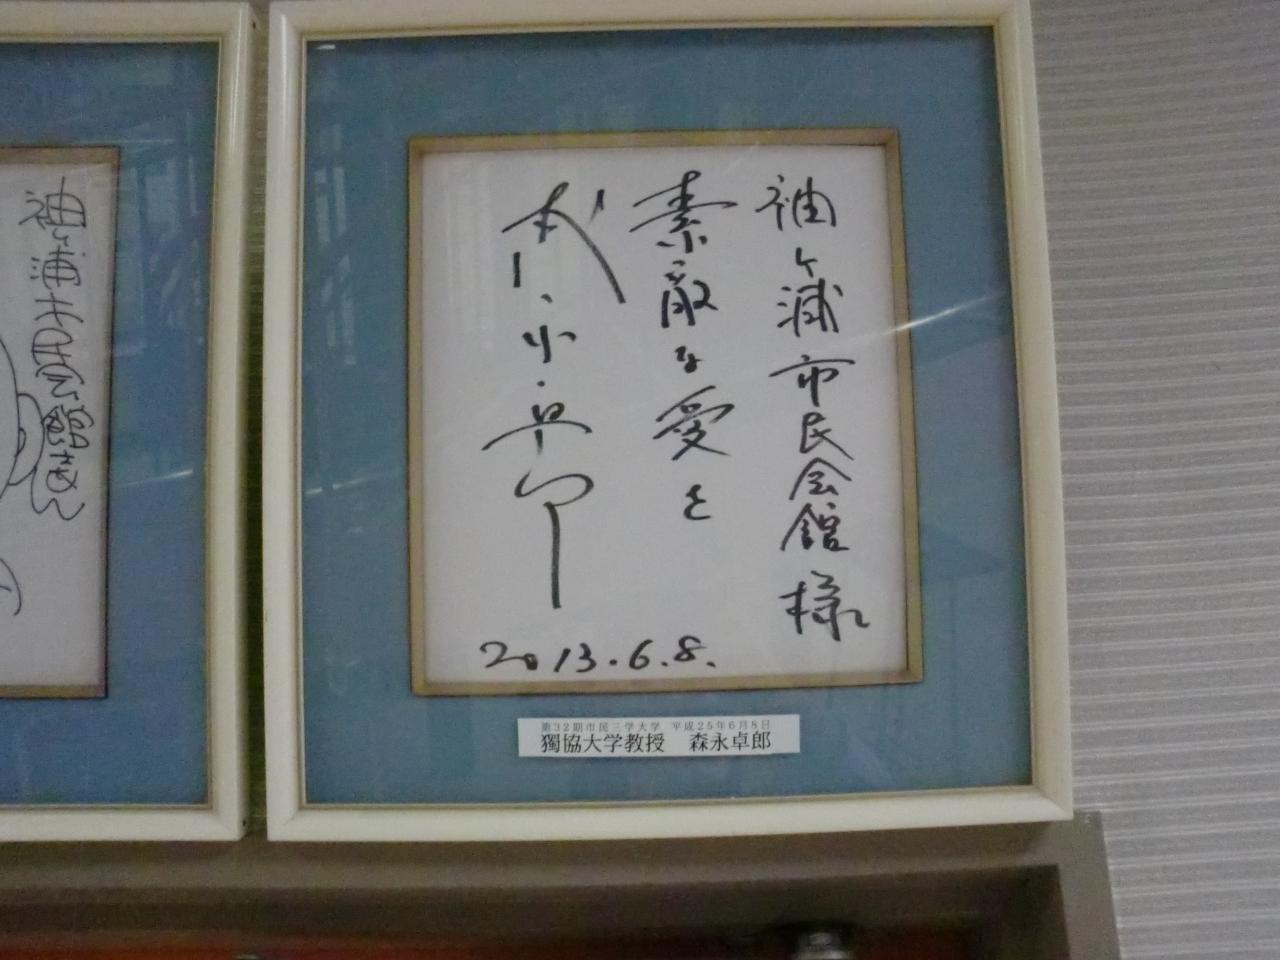 袖ヶ浦市民会館様
素敵な愛を
森永卓郎
2013.6.8.
第32期市民三学大学 平成25年6月8日
獨協大学教授 森永卓郎
袖ヶ浦市民会館さん